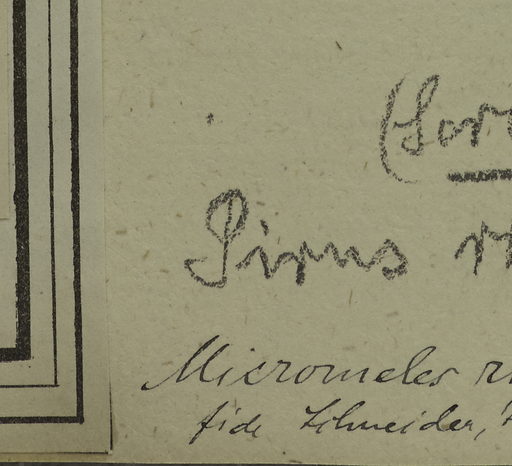 (Sor
Pirus
Micromeles
fide Schneider,